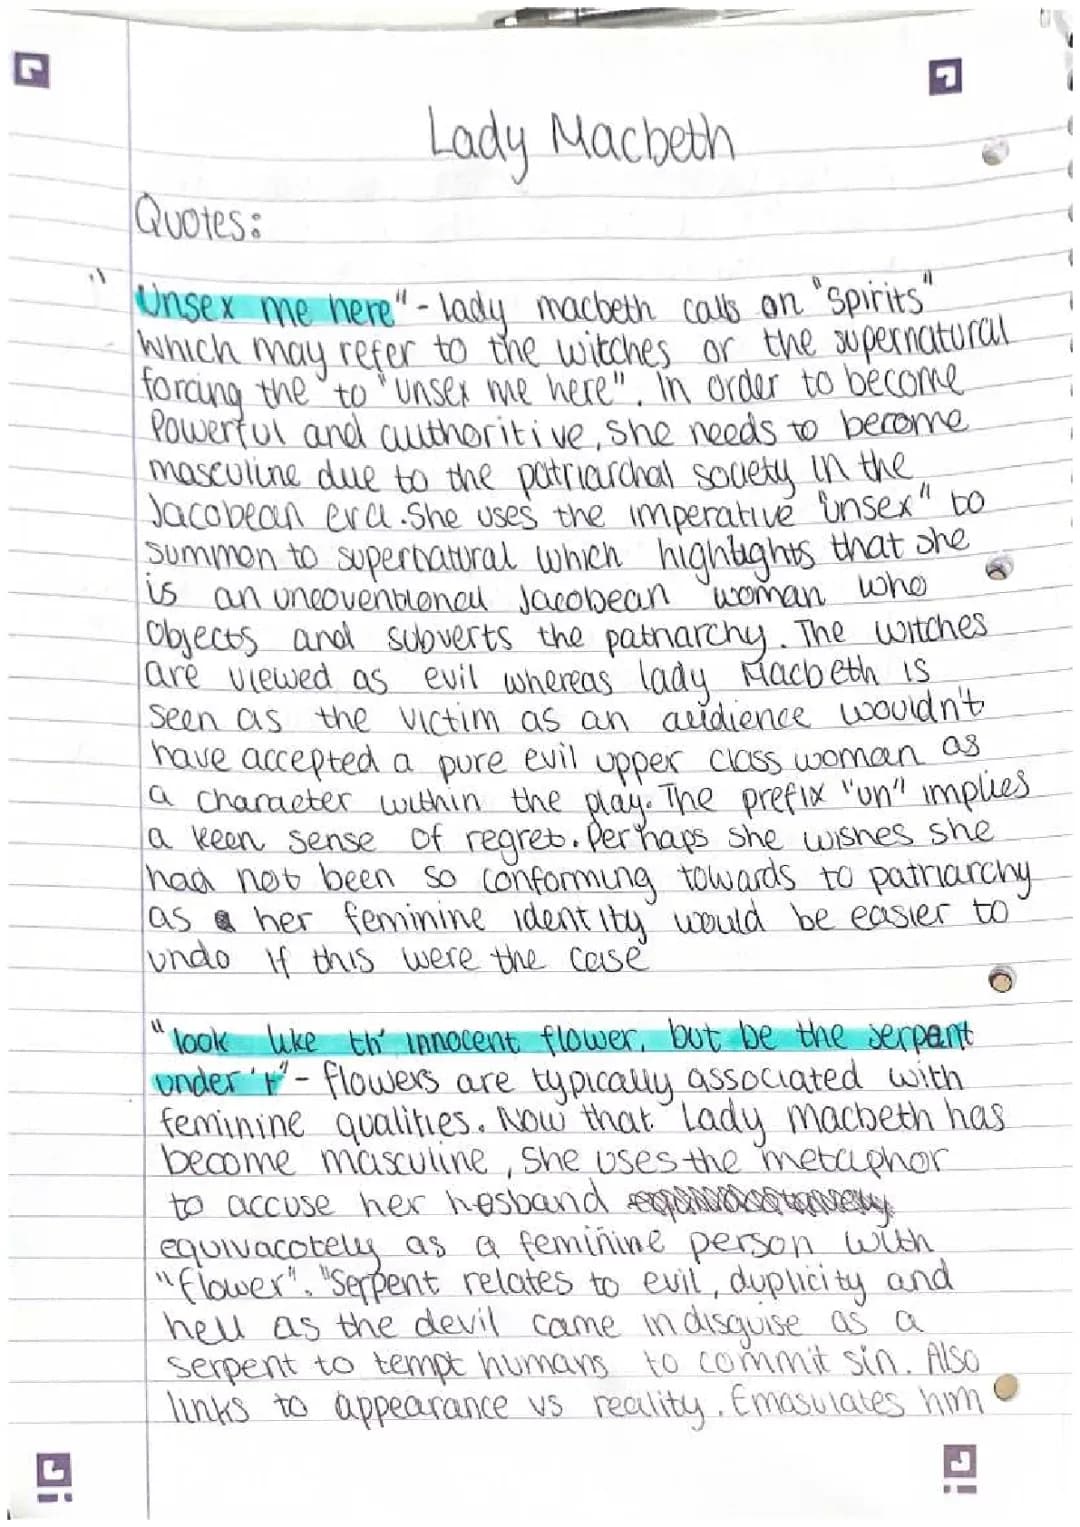 Lady Macbeth
Quotes:
"Unsex me here" - lady macbeth calls on "spirits"
which may refer to the witches or the supernatural
forcing the to "unsex me here". In order to become
powerful and authoritive, she needs to become
masculine due to the patriarchal society in the
Jacobean era. She uses the imperative "unsex" to
summon to supernatural which highlights that she
is an unconventional Jacobean woman who
objects and subverts the patriarchy. The witches
are viewed as evil whereas lady Macbeth is
seen as the victim as an audience wouldn't
have accepted a pure evil upper class woman as
a character within the play. The prefix "un" implies
a keen sense of regret. Perhaps she wishes she
had not been so conforming towards to patriarchy
as her feminine identity would be easier to
undo if this were the case
"look like th' innocent flower, but be the serpent
under 't" - flowers are typically associated with
feminine qualities. Now that Lady macbeth has
become masculine, she uses the metaphor
to accuse her hosband
equivacotely as a feminine person with
"flower". "Serpent relates to evil, duplicity and
hell as the devil came in disguise as a
serpent to tempt humans to commit sin. Also
links to appearance vs reality. Emasulates him